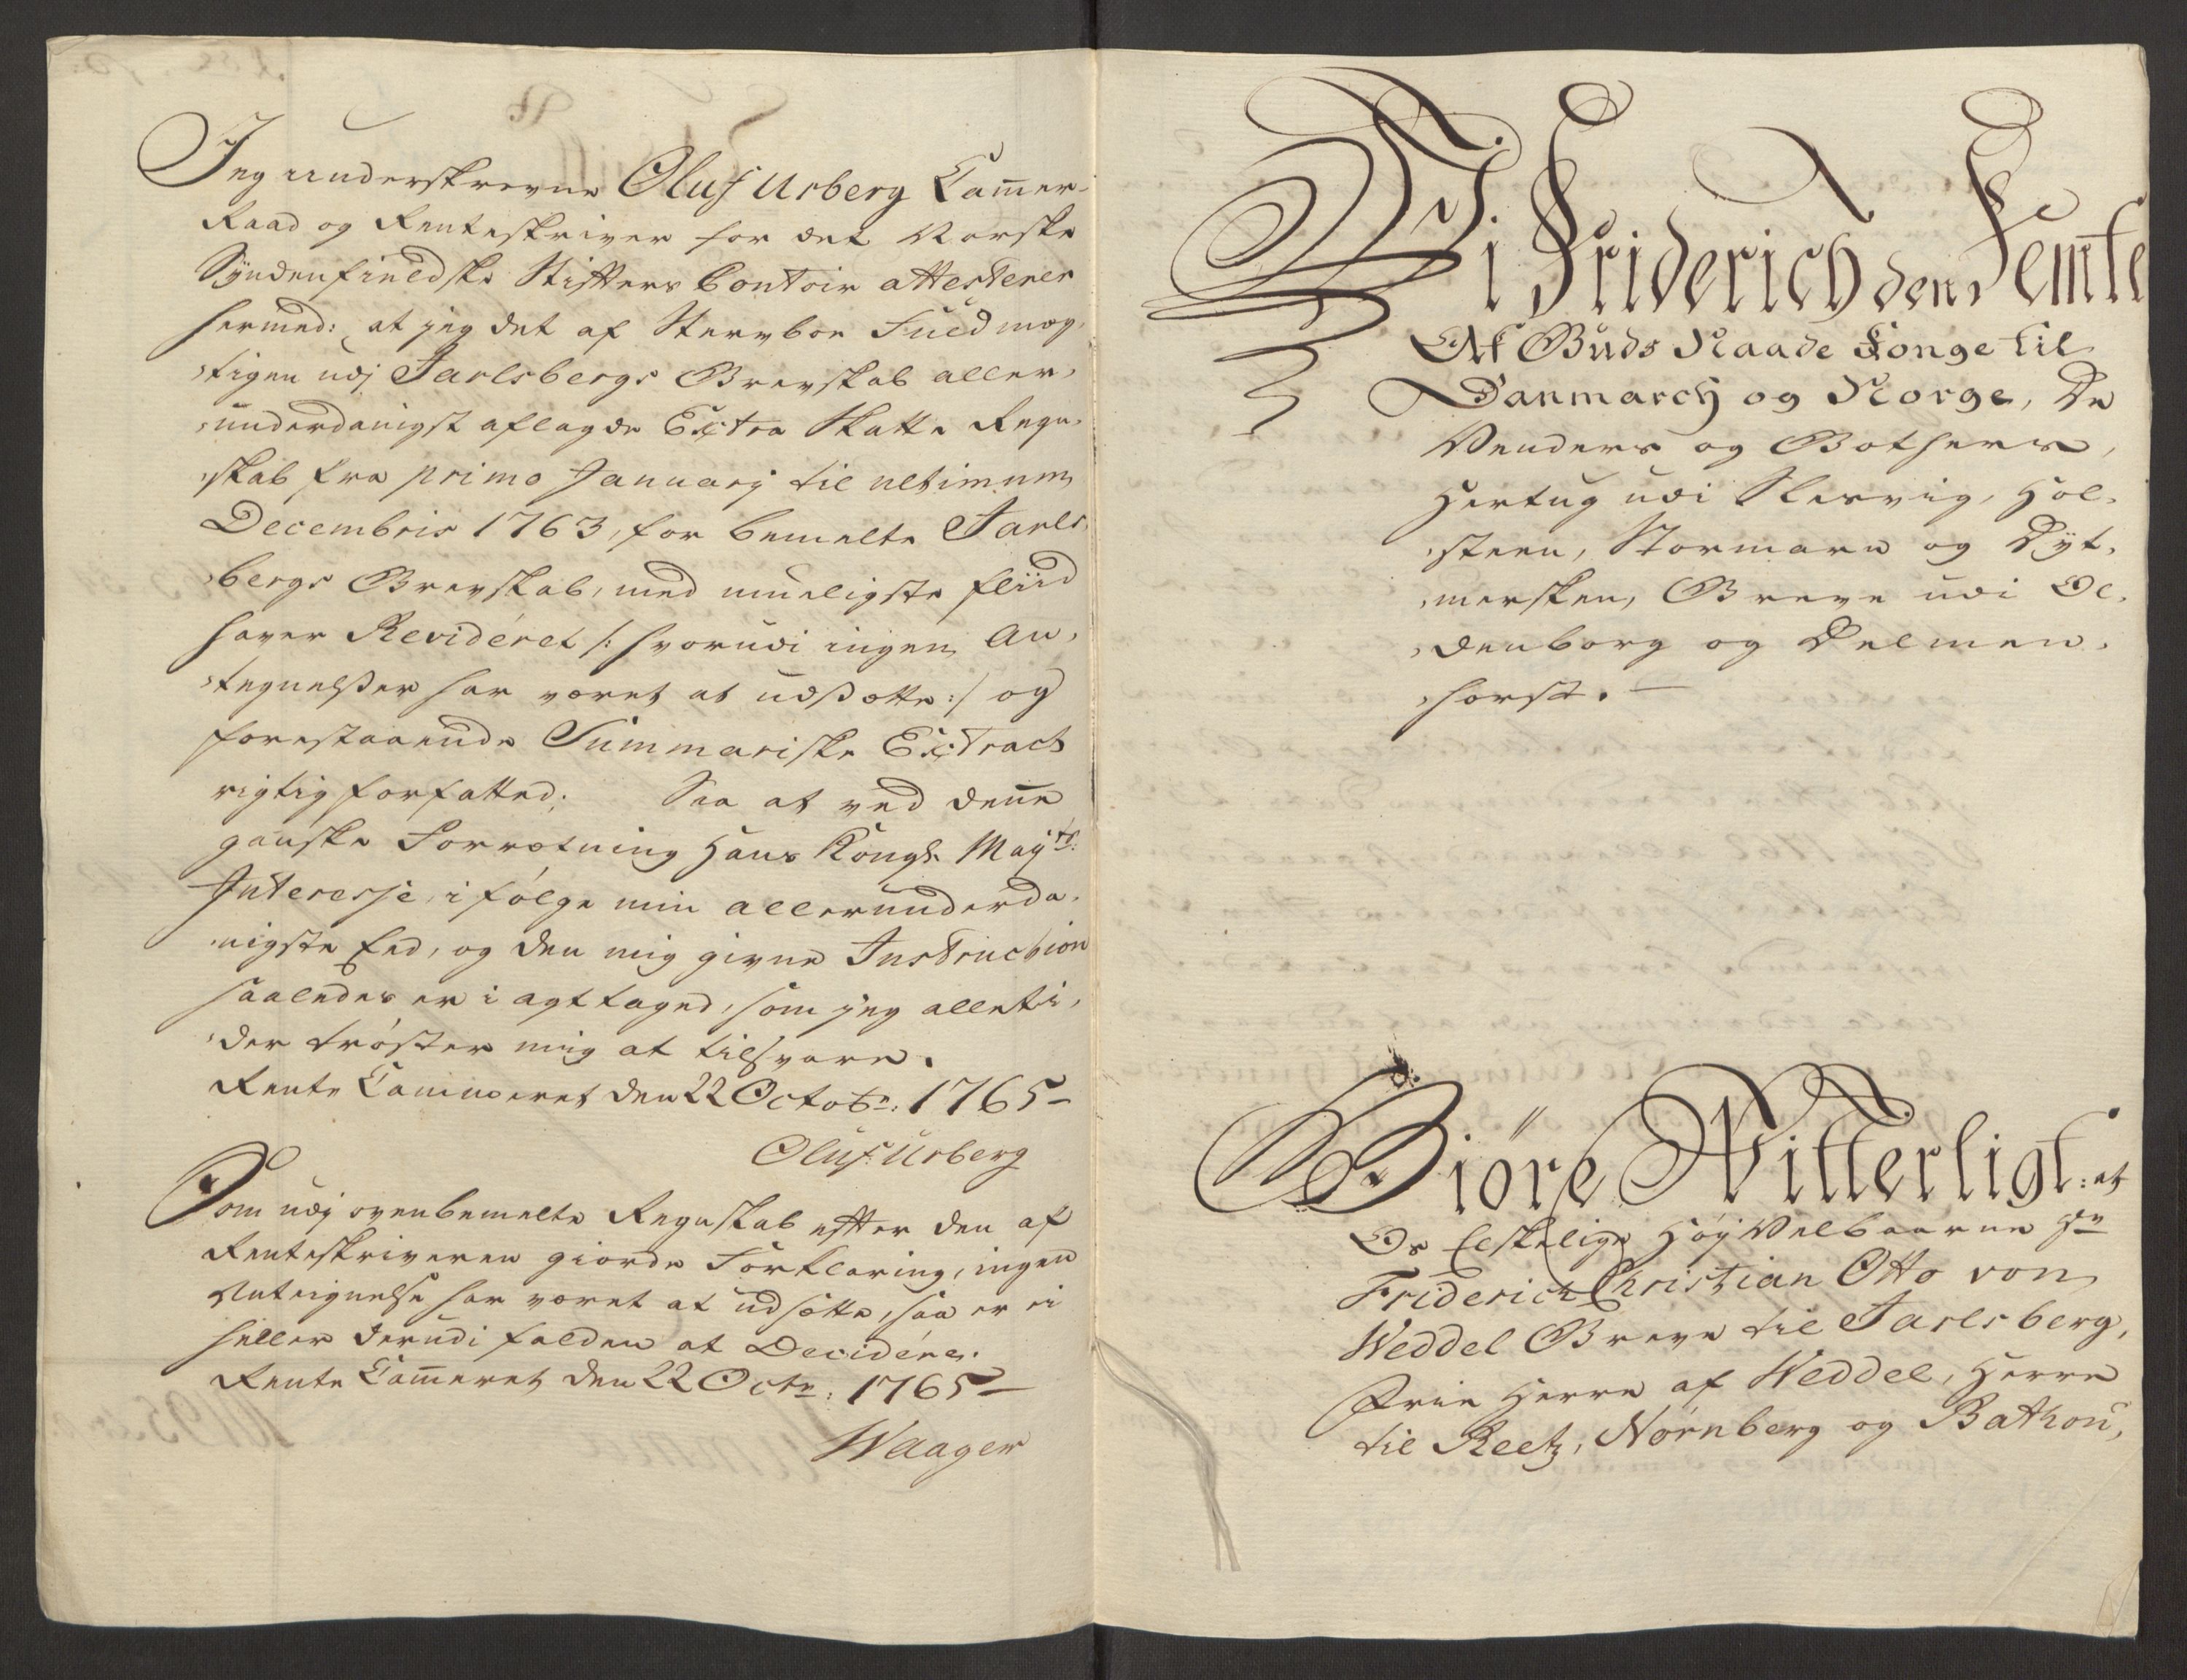 Jeg underskrevne Oluf Urberg Cam̄er-
Raad og Renteskriver for det Norske
Syndenfieldske Stifters Contoir attesterer
hermed: at jeg det af Stervboe Fuldmæg-
tigen udj Jarlsbergs Grevskab aller-
underdanigst aflagde Extra Skatte Regn-
skab fra primo Januarij til ultimum
Decembris 1763, for bemelte Jarls-
bergs Grevskab, med mueligste fliid
haver Revideret /: hvorudi ingen An-
tegnelßer har været at udßætte :/ og
forestaaende Summariske Extract
rigtig forfatted; Saa at ved den̄e
ganske Forrætning Hans Kongl. Mayts:
Interesse, i følge min allerunderda-
nigste Eed, og den mig givne Instruction
saaledes er i agt taged, som jeg alleti-
der trøster mig at tilsvare.
Rente Cammeret den 22 Octobr: 1765
Oluf Urberg
Som udj ovenbemelte Regnskab efter den af
Renteskriveren giorde Forklaring, ingen
Anteignelse har været at udsætte, saa er ei
heller derudi falden at Decidere.
Rente Cam̄eret den 22 Octr: 1765
Waager
Vi Friderich den Femte
Af Guds Naade Konge til
Danmarch og Norge, De
Venders og Gothers,
Hertug udi Slesvig, Hol-
steen, Stormarn og Dyt-
mersken, Greve udi Ol-
denborg og Delmen-
horst.
Giöre Vitterligt: at
Os Elskelige Høy Velbaarne Hr
Friderich Christian Otto von
Weddel Greve til Jarlsberg,
Frie Herre af Weddel, Herre
til Reetz, Nörnberg og Bathou,